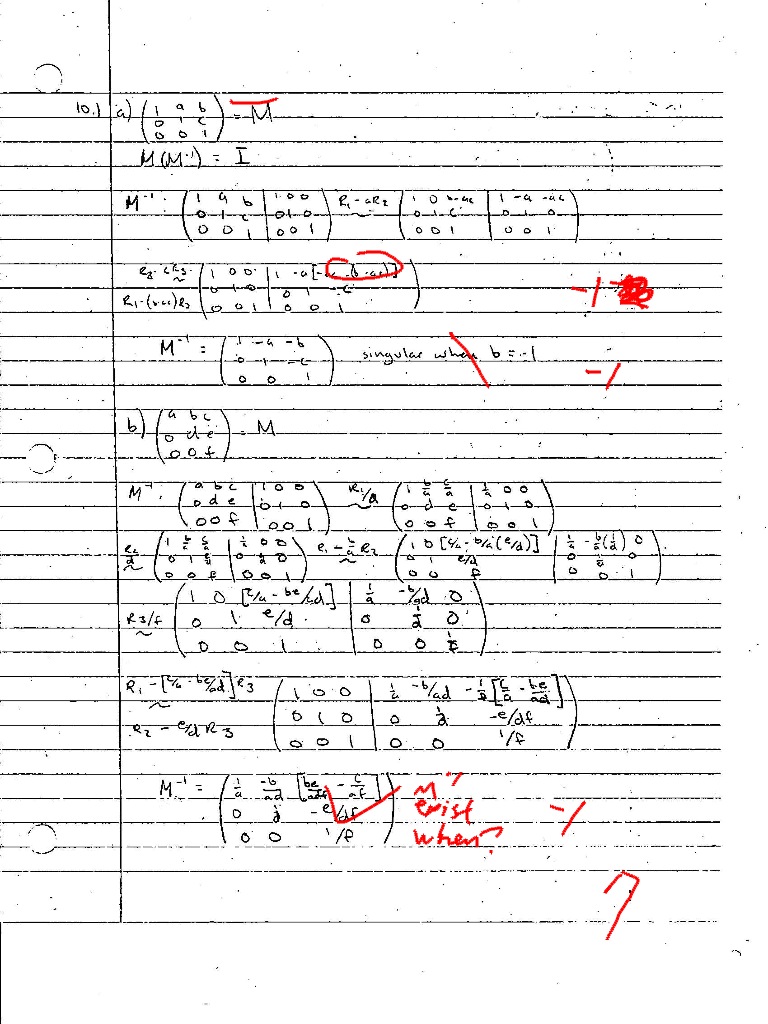 10.1 a) ( 1 a b ; 0 1 c ; 0 0 1 ) = M
M(M⁻¹) = I
M⁻¹: ( 1 a b | 1 0 0 ; 0 1 c | 0 1 0 ; 0 0 1 | 0 0 1 ) R₁-aR₂ ~ ( 1 0 b-ac | 1 -a -ac ; 0 1 c | 0 1 0 ; 0 0 1 | 0 0 1 )
R₂-cR₃ ~ R₁-(b-ac)R₃ ( 1 0 0 | 1 -a [-ac-(b-ac)] ; 0 1 0 | 0 1 -c ; 0 0 1 | 0 0 1 ) -1
M⁻¹ = ( 1 -a -b ; 0 1 -c ; 0 0 1 ) singular when b = -1 -1
b) ( a b c ; 0 d e ; 0 0 f ) = M
M⁻¹: ( a b c | 1 0 0 ; 0 d e | 0 1 0 ; 0 0 f | 0 0 1 ) R₁/a ~ ( 1 b/a c/a | 1/a 0 0 ; 0 d e | 0 1 0 ; 0 0 f | 0 0 1 )
R₂/d ~ ( 1 b/a c/a | 1/a 0 0 ; 0 1 e/d | 0 1/d 0 ; 0 0 f | 0 0 1 ) R₁-b/a R₂ ~ ( 1 0 [c/a-b/a(e/d)] | 1/a -b/a(1/d) 0 ; 0 1 e/d | 0 1/d 0 ; 0 0 f | 0 0 1 )
R3/f ~ ( 1 0 [c/a - be/ad] | 1/a -b/ad 0 ; 0 1 e/d | 0 1/d 0 ; 0 0 1 | 0 0 1/f )
R₁-[c/a-be/ad]R₃ ~ R₂-e/d R₃ ( 1 0 0 | 1/a -b/ad -1/f[c/a-be/ad] ; 0 1 0 | 0 1/d -e/df ; 0 0 1 | 0 0 1/f )
M⁻¹ = ( 1/a -b/ad [be/adf - c/af] ; 0 1/d -e/df ; 0 0 1/f ) M⁻¹ exist when? -1
7